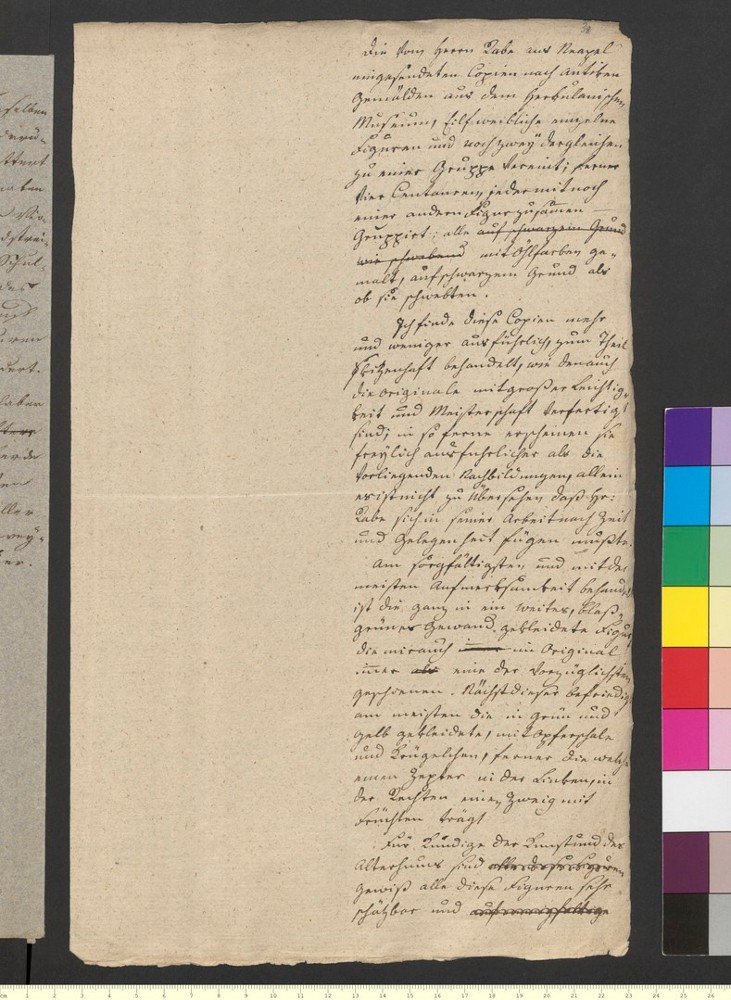 Die vom Herrn Zabe aus Neapel
eingesendeten Copien nach antiken
Gemälden aus dem Herkulanischen
Museum, Eilf weibliche einzelne
Figuren und noch zwey dergleichen
zu einer Gruppe vereint; ferner
Vier Centauren, jeder mit noch
einer andern Figur zusamen
Gruppirt; alle auf schwarzem Grund
wie schwebend mit Öhlfarben ge-
malt, auf schwarzem Grund als
ob sie schwebten.
Ich finde diese Copien mehr
und weniger ausführlich, zum Theil
Skitzenhaft behandelt, wie denn auch
die Originale mit großer Leichtig-
keit und Meisterschaft verfertigt
sind; in so ferne erscheinen sie
freylich ausführlicher als die
vorliegenden Nachbildungen, allein
es ist nicht zu übersehen daß Hr:
Zabe sich in seiner Arbeit nach Zeit
und Gelegenheit fügen mußte.
Am sorgfältigsten und mit der
meisten Aufmerksamkeit behandelt
ist die ganz in ein weites, blaß-
grünes Gewand gekleidete Figur,
die mir auch im Original
immer als eine der vorzüglichsten
geschienen. Nächst dieser befriedigt
am meisten die in grün und
gelb gekleidete, mit Opferschale
und Krügelchen, ferner die welche
einen Zepter in der Linken, in
der Rechten einen Zweig mit
Früchten trägt
Für Kundige der Kunst und des
Alterthums sind alle diese Figuren
gewiß alle diese Figuren sehr
schätzbar und